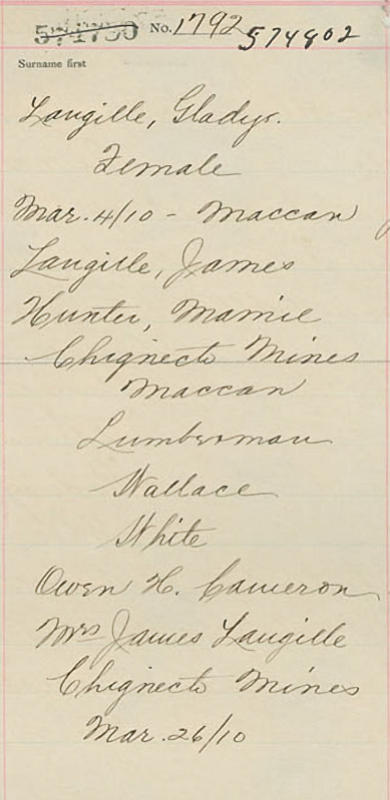 571750 No. 1792 574802
Surname first
Langille, Gladys.
Female
Mar. 4/10 - Maccan
Langille, James
Hunter, Mamie
Chignecto Mines
Maccan
Lumberman
Wallace
White
Owen H. Cameron
Mrs James Langille
Chignecto Mines
Mar. 26/10